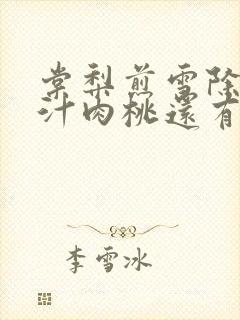 棠梨煎雪除
汁肉桃還有
李雪冰